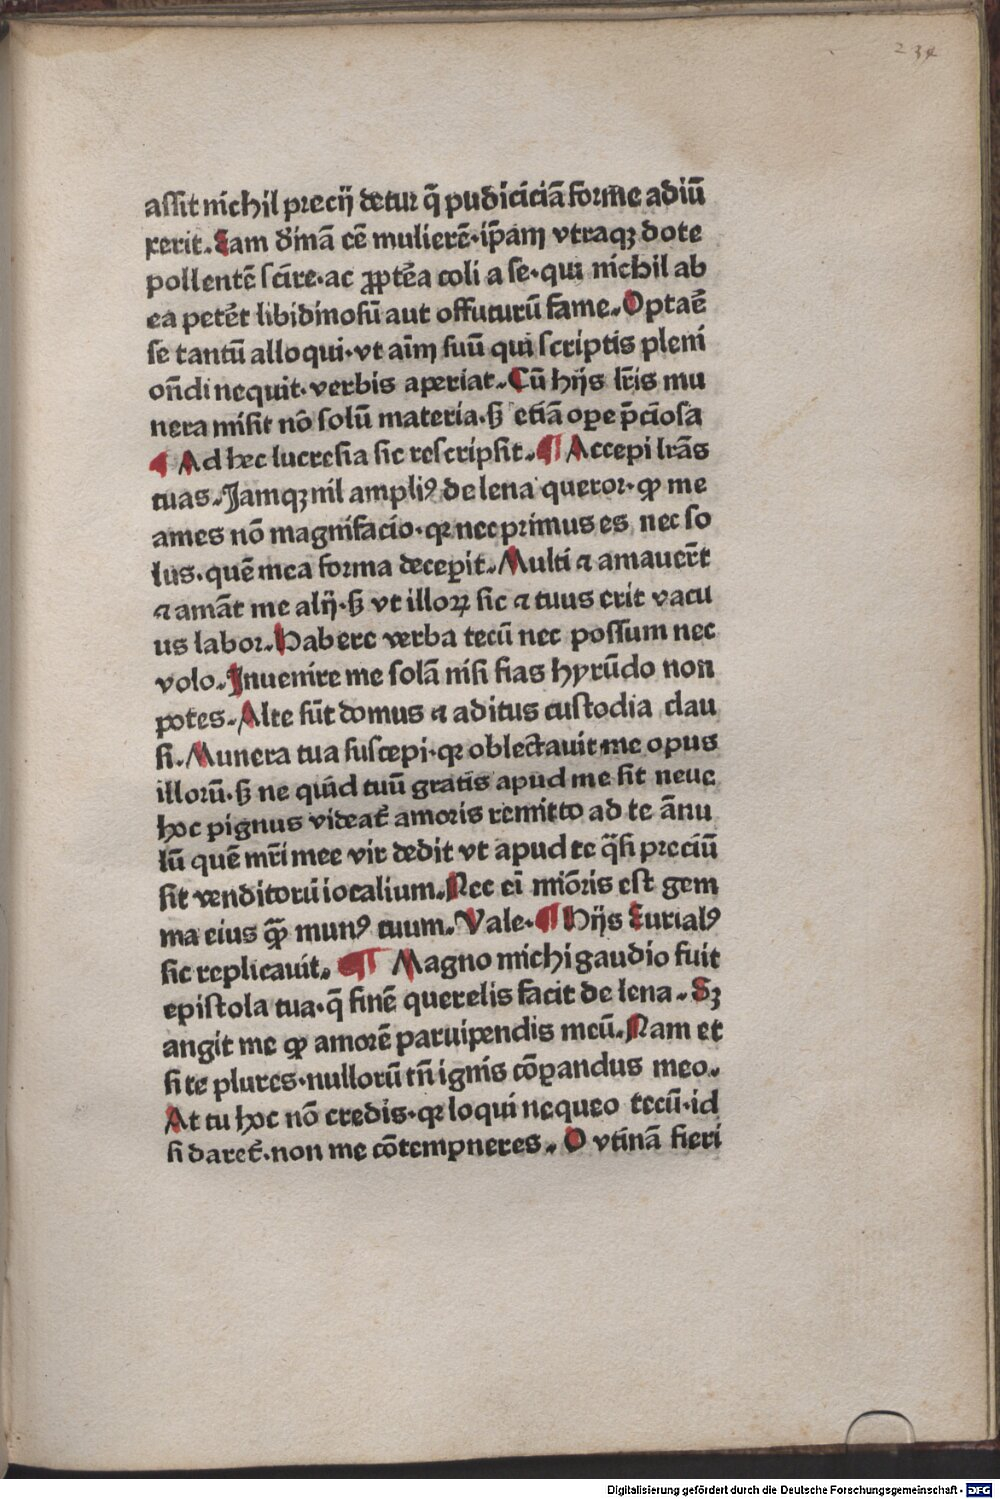 234
assit nichil precij detur q̄ pudiciciā forme adiū
xerit. Eam dīnā cē mulierē·ip̄am vtraqꝫ dote
pollentē scīre·ac ꝓptēa coli a se·qui nichil ab
ea petēt libidinosū aut offuturū fame. Optaē
se tantū alloqui·vt aīm suū qui scriptis pleni
on̄di nequit·verbis aperiat. Cū hijs lr̄is mu
nera misit nō solū materia·sꝫ etiā ope p̄ciosa
¶ Ad hec lucresia sic rescripsit. ¶ Accepi lr̄as
tuas. Jamqꝫ nil ampliꝰ de lena queror·ꝙ me
ames nō magnifacio·qꝛ nec primus es nec so
lus·quē mea forma decepit. Multi ⁊ amauer̄t
⁊ amāt me alij·sꝫ vt illoꝝ sic ⁊ tuus erit vacu
us labor. Habere verba tecū nec possum nec
volo. Inuenire me solā nisi fias hyrūdo non
potes. Alte sūt domus ⁊ aditus custodia clau
si. Munera tua suscepi·qꝛ oblectauit me opus
illorū·sꝫ ne quid tuū gratis apud me sit neue
hoc pignus videat̄ amoris remitto ad te ānu
lū quē mr̄i mee vir dedit vt apud te q̄si preciū
sit venditorū iocalium. Nec eī mīoris est gem
ma eius ꝙ̄ munꝰ tuum. Vale. ¶ Hijs Eurialꝰ
sic replicauit. ¶ Magno michi gaudio fuit
epistola tua·q̄ finē querelis facit de lena. Sꝫ
angit me ꝙ amorē paruipendis meū. Nam et
si te plures·nullorū tn̄ ignis cōꝑandus meo.
At tu hoc nō credis·qꝛ loqui nequeo tecū·id
si daret̄·non me cōtempneres. O vtinā fieri
Digitalisierung gefördert durch die Deutsche Forschungsgemeinschaft - DFG